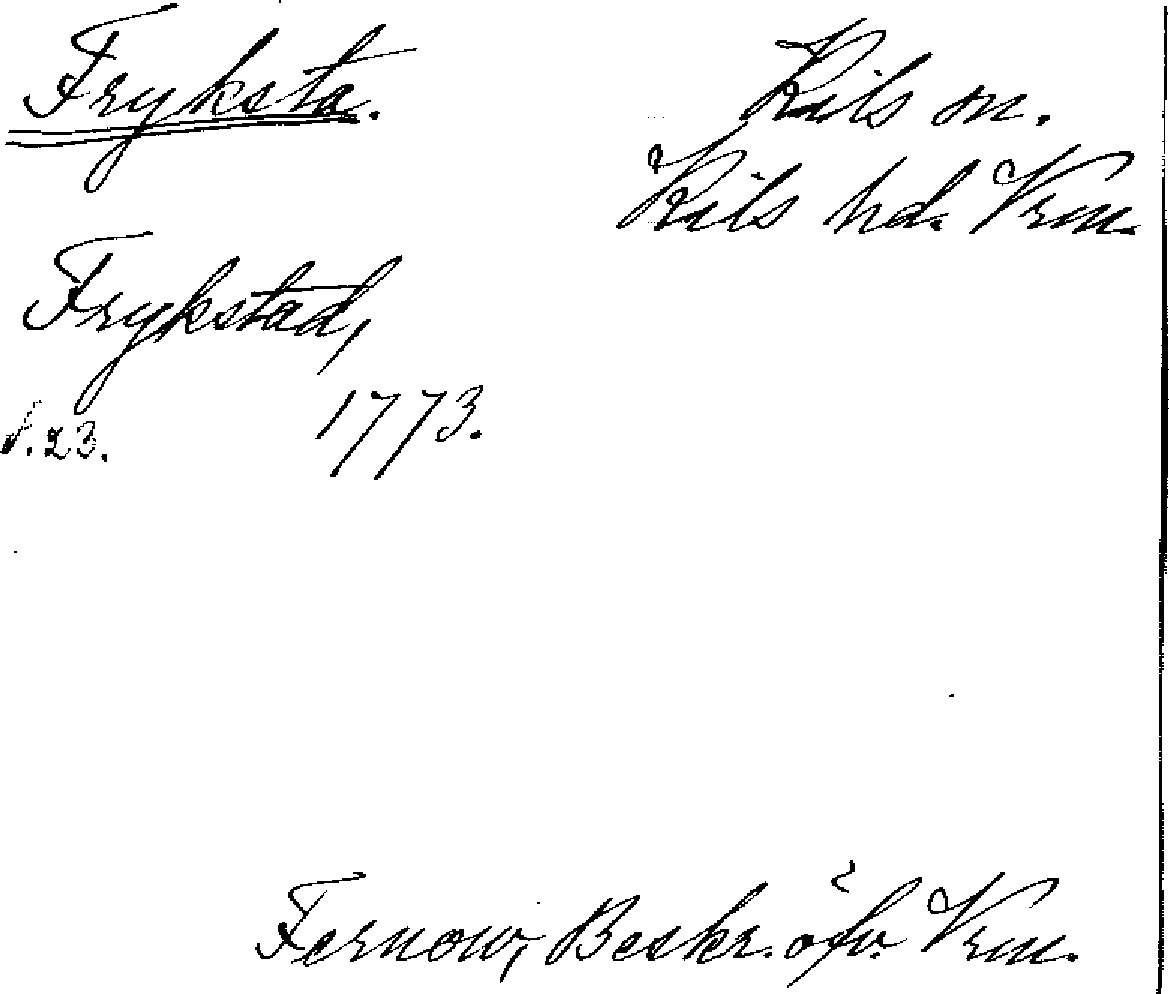 Fryksta.
Kils sn.
Kils hd. Vrm.
Frykstad,
s. 23. 1773.
Fernow, Beskr. öfv. Vrm.